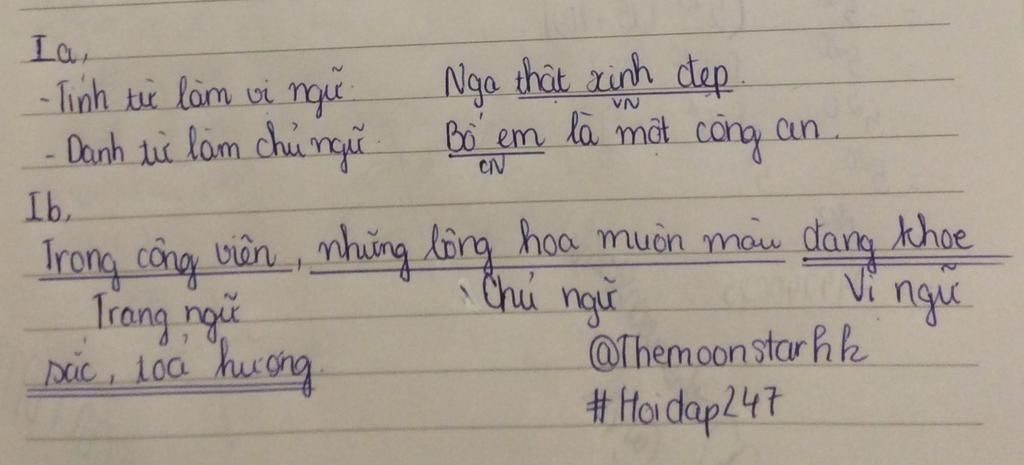 Ia,
- Tính từ làm vị ngữ. Nga thật xinh đẹp.
VN
- Danh từ làm chủ ngữ. Bố em là một công an.
CN
Ib,
Trong công viên, những lông hoa muôn màu đang khoe
Trạng ngữ Chủ ngữ Vị ngữ
sắc, toả hương.
@Themoonstarhk
#Hoidap247